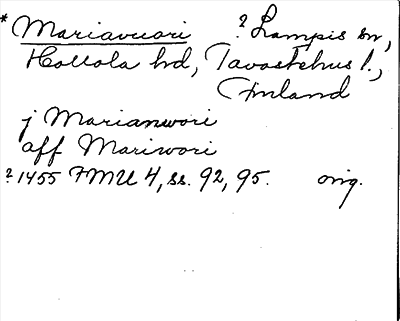 * Mariavuori ? Lampis sn,
Hollola hd, Tavastehus l.,
Finland
j Marianwori
aff Mariwori
? 1455 FMU 4, ss. 92, 95. orig.